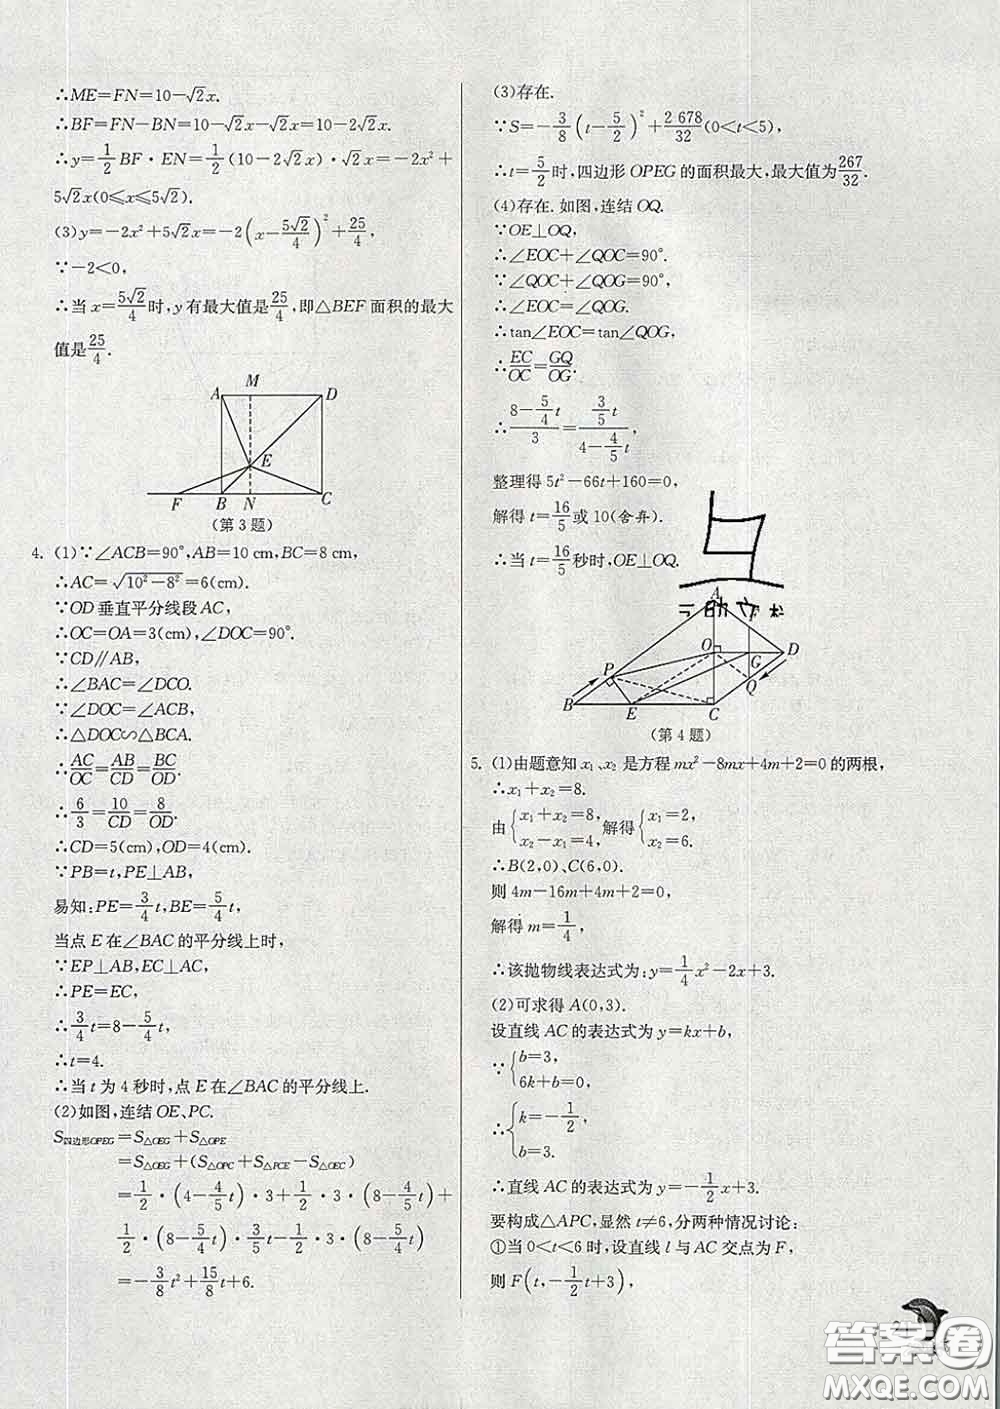 ∴ME=FN=10-√2x.
∴BF=FN-BN=10-√2x-√2x=10-2√2x.
∴y=1/2 BF·EN=1/2(10-2√2x)·√2x=-2x²+
5√2x(0≤x≤5√2).
(3)y=-2x²+5√2x=-2(x-5√2/4)²+25/4,
∵-2<0,
∴当x=5√2/4时,y有最大值是25/4,即△BEF面积的最大
值是25/4.
A M D
E
F B N C
(第3题)
4. (1)∵∠ACB=90°,AB=10 cm,BC=8 cm,
∴AC=√(10²-8²)=6(cm).
∵OD垂直平分线段AC,
∴OC=OA=3(cm),∠DOC=90°.
∵CD∥AB,
∴∠BAC=∠DCO.
∵∠DOC=∠ACB,
∴△DOC∽△BCA.
∴AC/OC=AB/CD=BC/OD.
∴6/3=10/CD=8/OD.
∴CD=5(cm),OD=4(cm).
∵PB=t,PE⊥AB,
易知:PE=3/4 t,BE=5/4 t,
当点E在∠BAC的平分线上时,
∵EP⊥AB,EC⊥AC,
∴PE=EC,
∴3/4 t=8-5/4 t,
∴t=4.
∴当t为4秒时,点E在∠BAC的平分线上.
(2)如图,连结OE、PC.
S四边形OPEG=S△OEG+S△OPE
=S△OEG+(S△OPC+S△PCE-S△OEC)
=1/2·(4-4/5 t)·3+1/2·3·(8-4/5 t)+
1/2·(8-5/4 t)·3/5 t-1/2·3·(8-5/4 t)
=-3/8 t²+15/8 t+6.
(3)存在.
∵S=-3/8(t-5/2)²+2 678/32(0<t<5),
∴t=5/2时,四边形OPEG的面积最大,最大值为267/32.
(4)存在.如图,连结OQ.
∵OE⊥OQ,
∴∠EOC+∠QOC=90°.
∵∠QOC+∠QOG=90°,
∴∠EOC=∠QOG.
∴tan∠EOC=tan∠QOG,
∴EC/OC=GQ/OG.
∴(8-5/4 t)/3=(3/5 t)/(4-4/5 t),
整理得5t²-66t+160=0,
解得t=16/5或10(舍弃).
∴当t=16/5秒时,OE⊥OQ.
A
O D
P G
Q
B E C
(第4题)
5. (1)由题意知x₁、x₂是方程mx²-8mx+4m+2=0的两根,
∴x₁+x₂=8.
由{x₁+x₂=8, x₂-x₁=4, 解得{x₁=2, x₂=6.
∴B(2,0)、C(6,0).
则4m-16m+4m+2=0,
解得m=1/4,
∴该抛物线表达式为:y=1/4 x²-2x+3.
(2)可求得A(0,3).
设直线AC的表达式为y=kx+b,
∵{b=3, 6k+b=0,
∴{k=-1/2, b=3.
∴直线AC的表达式为y=-1/2 x+3.
要构成△APC,显然t≠6,分两种情况讨论:
①当0<t<6时,设直线l与AC交点为F,
则F(t,-1/2 t+3),
答案圈
MXQE.COM